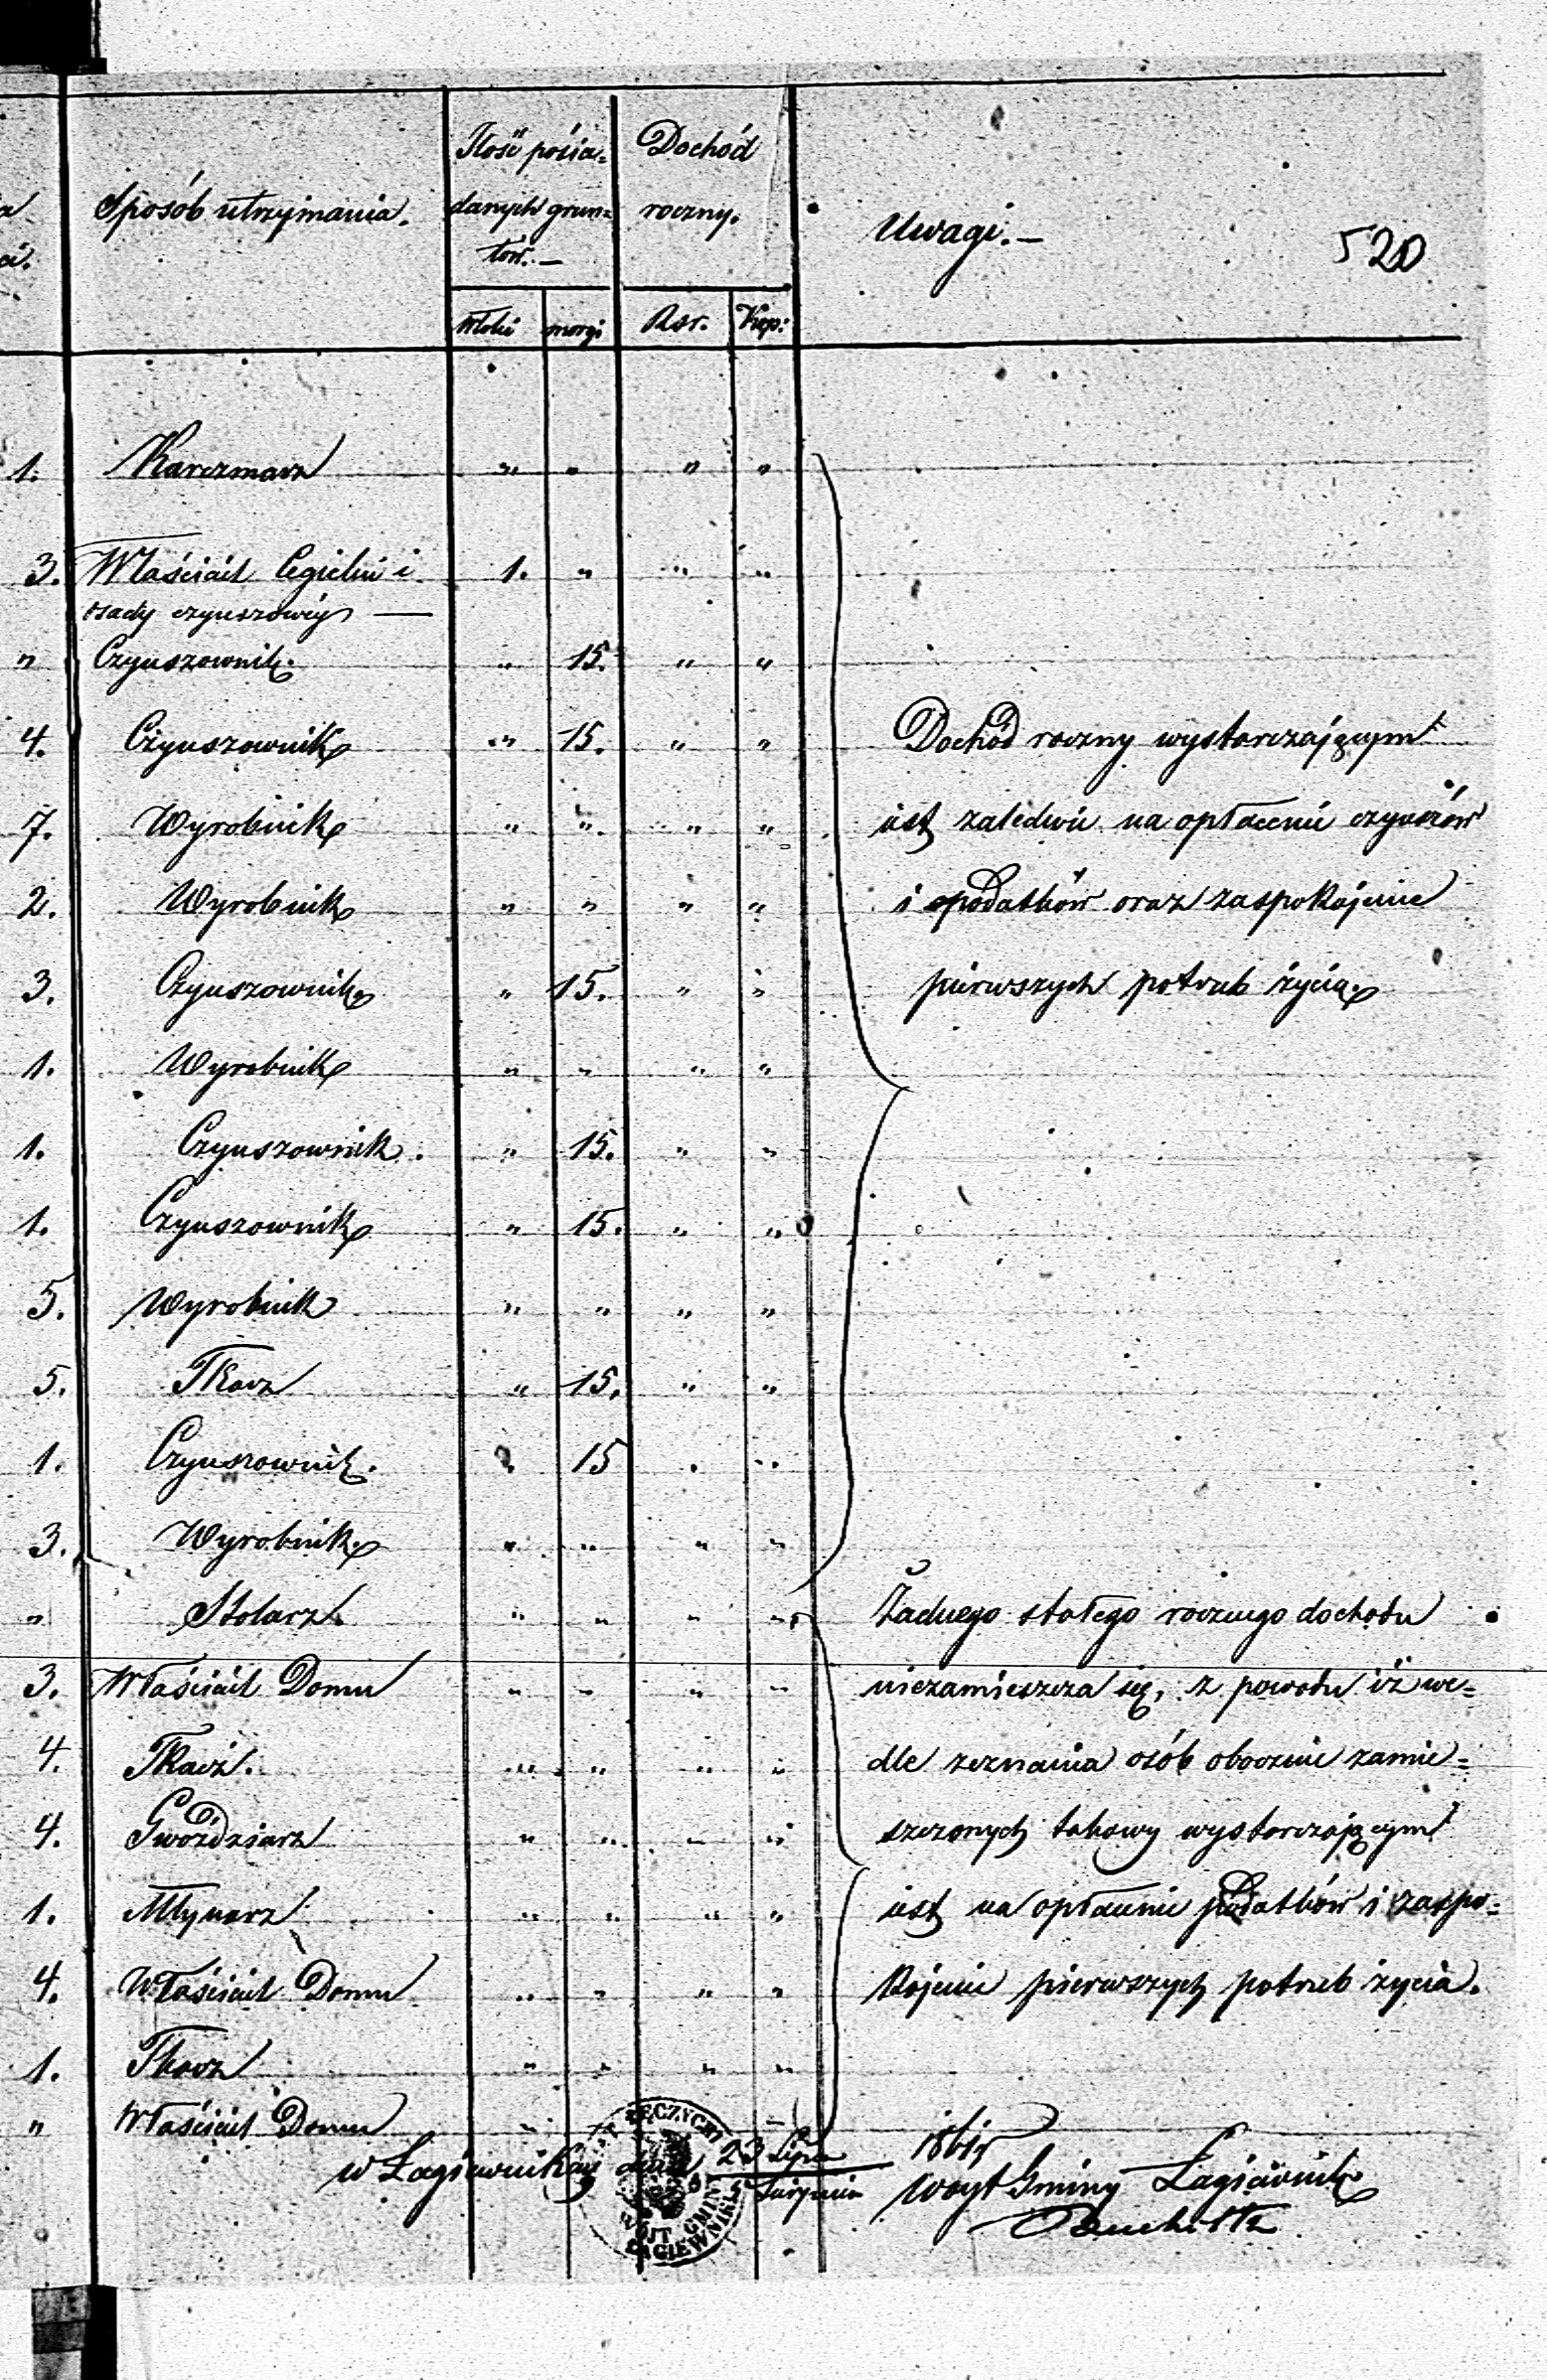 Sposób utrzymania.
Ilość posia=
danych grun=
tów. —
Włóki morgi
Dochód
roczny.
Rsr. Kop:
Uwagi. —
520
1. Karczmarz " " " "
3. Właściciel Cegielni i 1. " " "
osady czynszowéy —
" Czynszownik. " 15. " "
4. Czynszownik " 15. " "
7. Wyrobnik " " " "
2. Wyrobnik " " " "
3. Czynszownik " 15. " "
1. Wyrobnik " " " "
1. Czynszownik. " 15. " "
1. Czynszownik " 15. " "
5. Wyrobnik " " " "
5. Tkacz " 15. " "
1. Czynszownik. " 15 " "
3. Wyrobnik " " " "
" Stolarz. " " " "
3. Właściciel Domu " " " "
4. Tkacz. " " " "
4. Gwoździarz " " " "
1. Młynarz " " " "
4. Właściciel Domu " " " "
1. Tkacz " " " "
" Właściciel Domu " "
Dochód roczny wystarczającym
iest zaledwie na opłacenie czynszów
i podatków oraz zaspokojenie
pierwszych potrzeb życia.
Żadnego stałego rocznego dochodu
niezamieszcza się, z powodu iż we=
dle zeznania osób obocznie zamie=
szczonych takowy wystarczającym
iest na opłacenie podatków i zaspo=
kojenie pierwszych potrzeb życia.
w Łagiewnikach dnia 23 Lipca
Sierpnia
Woyt Gminy Łagiewniki
ŁĘCZYCKI
WÓJT GMINY
ŁAGIEWNIKI